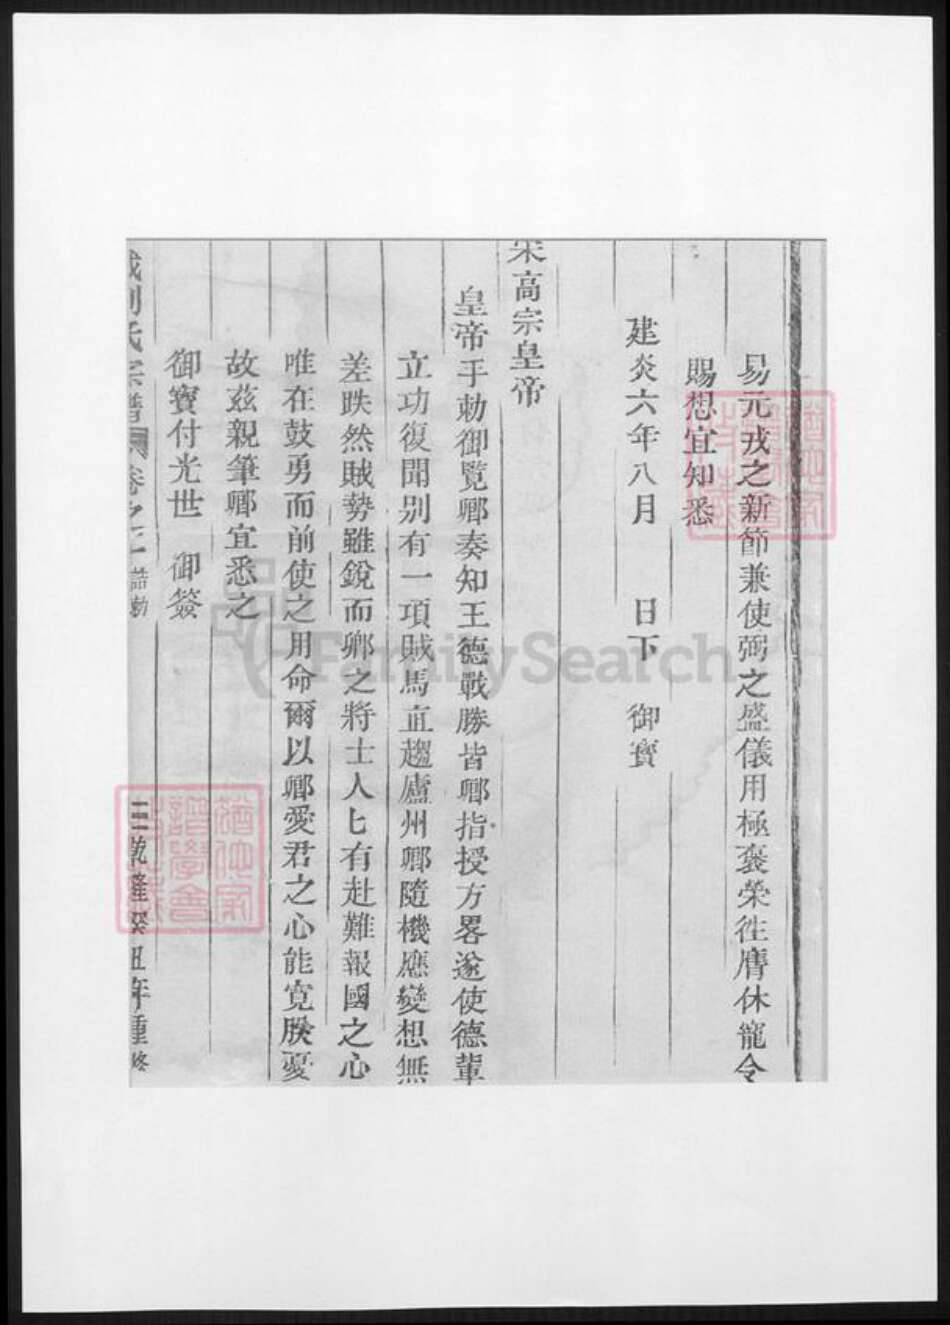 易元戎之新節兼使弼之盛儀用極褒榮徃膺休寵今
賜想宜知悉
建炎六年八月 日下 御寳
宋高宗皇帝
皇帝手勅御覽卿奏知王德戰勝皆卿指授方畧遂使德輩
立功復聞别有一項賊馬直趨廬州卿隨機應變想無
差跌然賊勢雖銳而卿之將士人匕有赴難報國之心
唯在鼓勇而前使之用命爾以卿愛君之心能寛朕憂
故茲親筆卿宜悉之
御寳付光世 御簽
劉氏宗譜 卷之 誥勅
乾隆癸丑年重修
FamilySearch